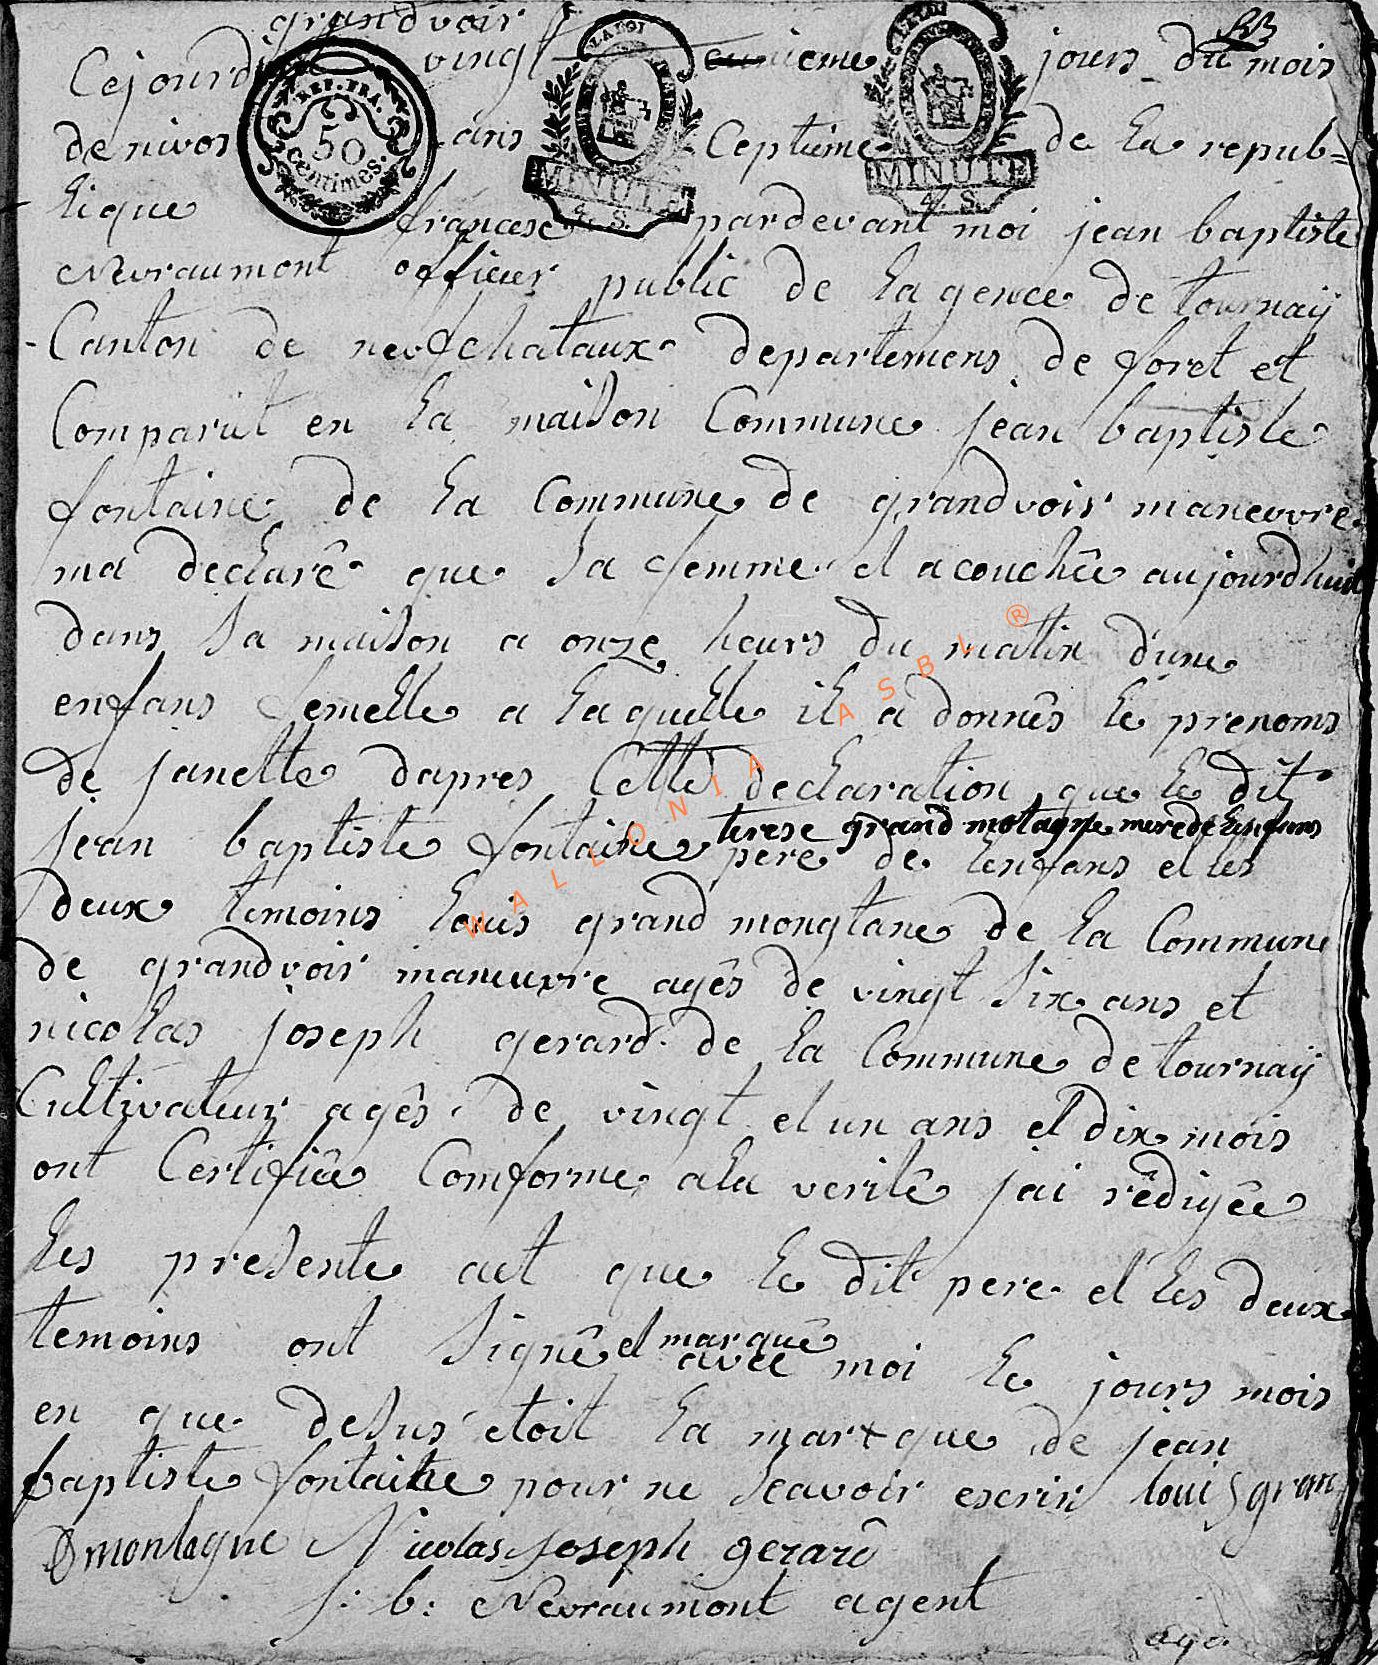 grandvoir
RB
Cejourd vingt eunieme jours du mois
de nivos ans Ceptieme de la repub=
lique francese pardevant moi jean baptiste
Nevraumont officier public de lagence de tournaÿ
Canton de neufchataux departemens de foret et
Comparut en la maison Commune jean baptiste
fontaine de la Commune de grandvoir maneuvre
ma declarê que sa femme et acouchêe aujourdhuit
dans sa maison a onze heurs du matin d'une
enfans femelle a laquelle il a donnês le prenoms
de janette dapres Cette declaration que le dit
terese grand motagne mere de lenfans
jean baptiste fontaine pere de lenfans et les
deux temoins louis grand mongtane de la Commune
de grandvoir maneuvre agês de vingt six ans et
nicolas joseph gerard de la Commune de tournaÿ
Cultivateur agês de vingt et un ans et dix mois
ont Certifiêe Comforme ala veritê jai rêdigêe
les presente act que le dit pere et les deux
et marquê
temoins ont signê avec moi le jours mois
en que desus etoit la mar+que de jean
baptiste fontaine pour ne seavoir escrir louis gran
Dmontagne Nicolas joseph gerard
j: b: Nevraumont agent
REP. FRA.
50
centimes.
LA LOI
MINUTE
4. S.
LA LOI
MINUTE
4. S.
WALLONIA ASBL ®